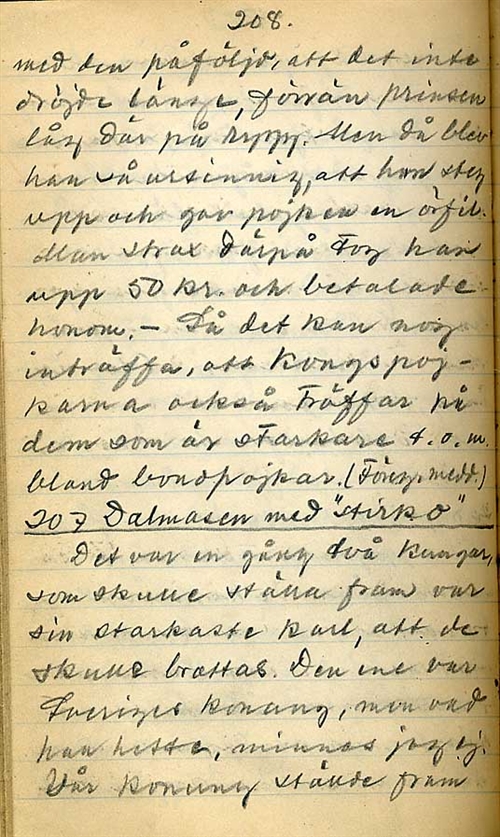 208.
med den påföljd, att det inte
dröjde länge, förrän prinsen
låg där på rygg. Men då blev
han så ursinnig, att han steg
upp och gav pojken en örfil.
Man strax därpå tog han
upp 50 kr. och betalade
honom. – Så det kan nog
inträffa, att kongspoj-
karna också träffar på
dem som är starkare t.o.m.
bland bondpojkar. (Föreg. medd.)
207 Dalmasen med "stirko"
Det var en gång två kungar,
som skulle ställa fram var
sin starkaste karl, att de
skulle brottas. Den ene var
Sveriges konung, men vad
han hette, minnas jag ej.
Vår konung ställde fram